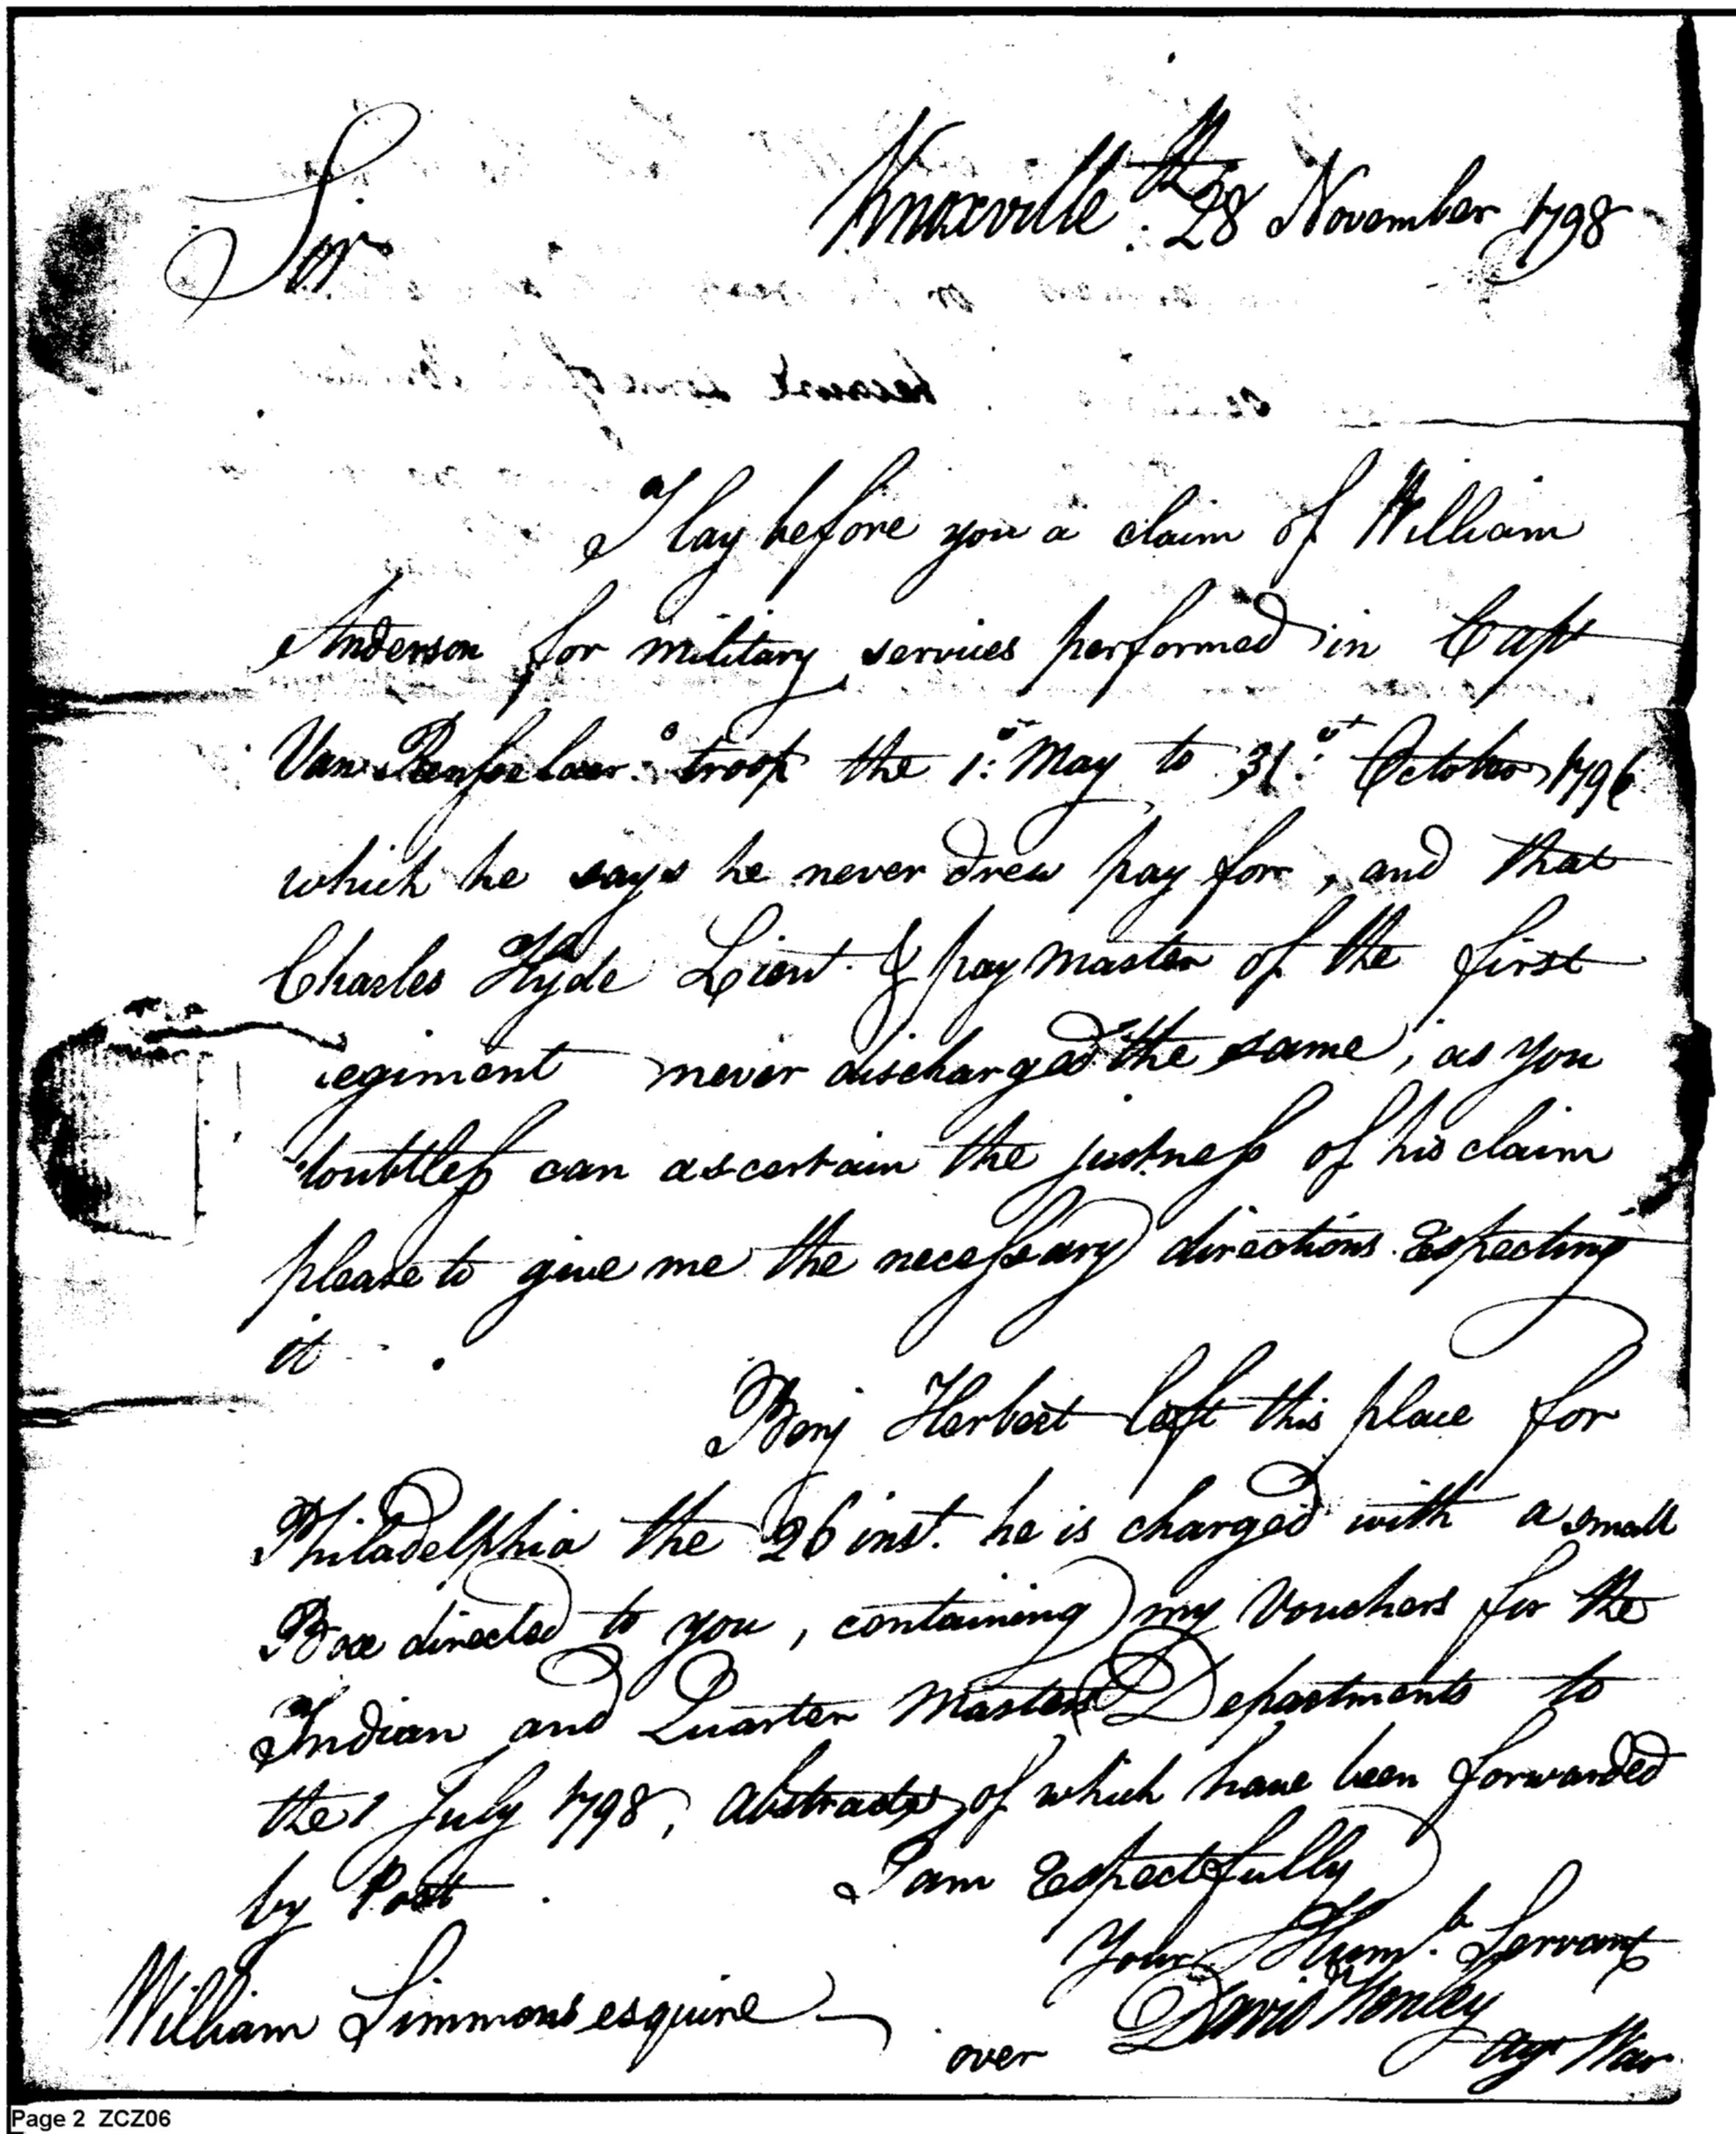 Knoxville 28th November 1798
Sir
I lay before you a claim of William
Anderson for military services performed in Capt
Van Rensselaer's troop the 1st May to 31st October 1796
which he says he never drew pay for, and that
Charles Hyde Lieut. & pay master of the first
egiment never discharged the same, as you
doubtless can ascertain the justness of his claim
please to give me the necessary directions Especting
it.
Benj Herbert left this place for
Philadelphia the 26 inst. he is charged with a small
Box directed to you, containing my Vouchers for the
Indian and Quarter Masters Departments to
the 1 July 1798, abstracts of which have been forwarded
by Post.
I am Espectfully
Your Humb. Servant
David Henley
William Simmons esquire
over
agt War
Page 2 ZCZ06